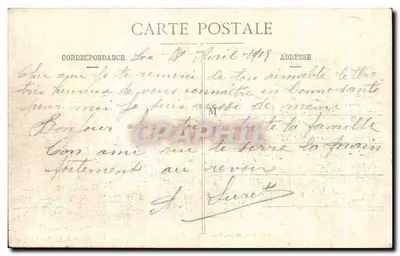 CARTE POSTALE
CORRESPONDANCE
Le 18 Avril 1918
ADRESSE
Cher ami Je te remerci de ton aimable lettre
très heureux de vous connaitre en bonne santé
pour moi Je suis aussi de même
M
Bonjour à toute la famille
CARTAPHILIE
Ton ami qui te serre la main
fortement au revoir
A. Suret